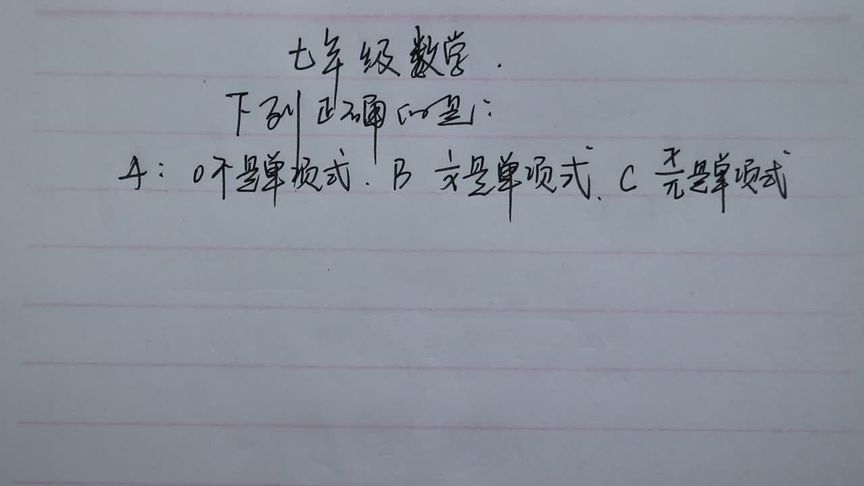 七年级数学.
下列正确的是:
A: 0不是单项式. B 1/x是单项式、C x/π是单项式